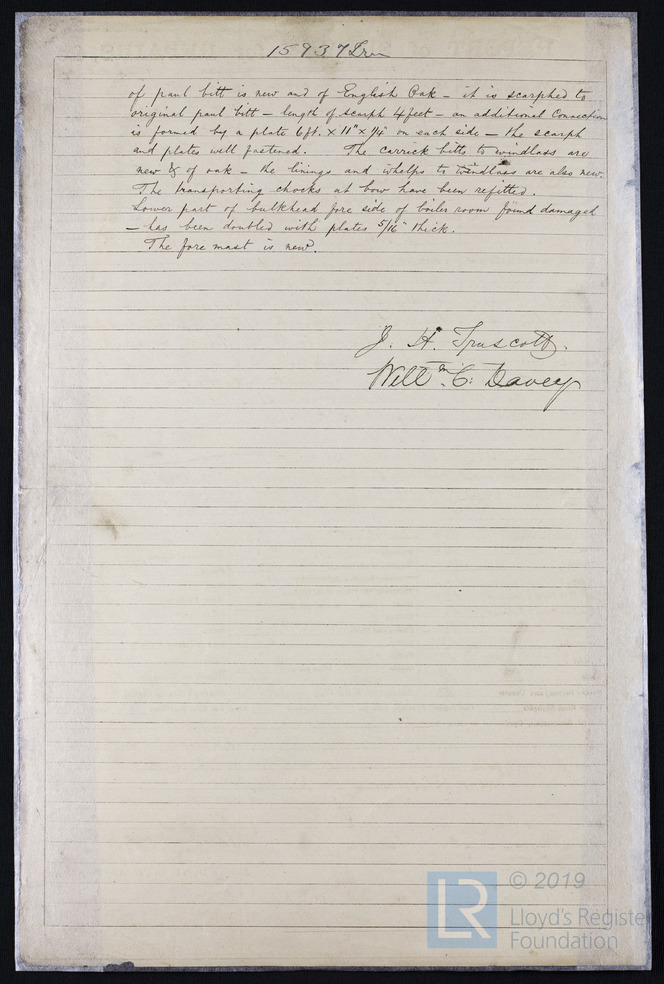 15937 Irn
of paul bitt is new and of English Oak – it is scarphed to
original paul bitt – length of scarph 4 feet – an additional Connection
is formed by a plate 6ft. × 11" × 1/4" on each side – the scarph
and plates well fastened. The carrick bitts to windlass are
new & of oak – the linings and whelps to windlass are also new.
The transporting chocks at bow have been refitted.
Lower part of bulkhead fore side of boiler room found damaged
– has been doubled with plates 5/16" thick.
The fore mast is new.
J. H. Truscott.
Willm. C. Davey
LR
© 2019
Lloyd's Register
Foundation